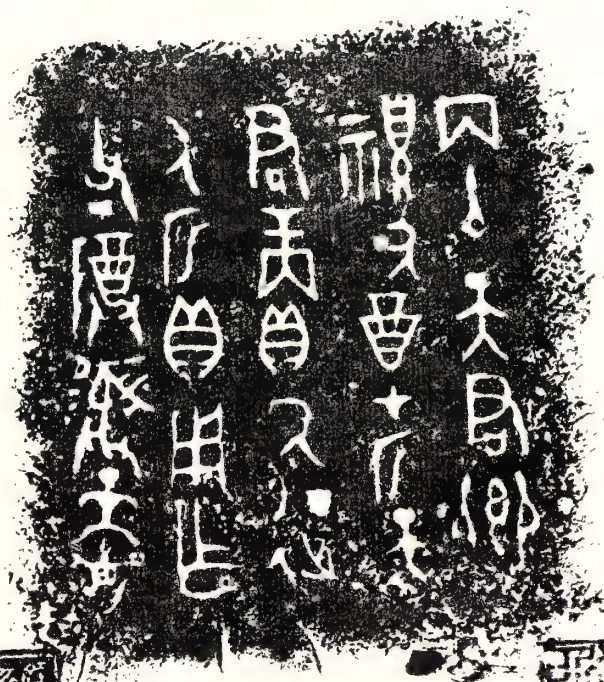 丙午天君鄉
禩酉才斤天
君賞貝厥征
人斤貝用乍
父丁尊彝天黽